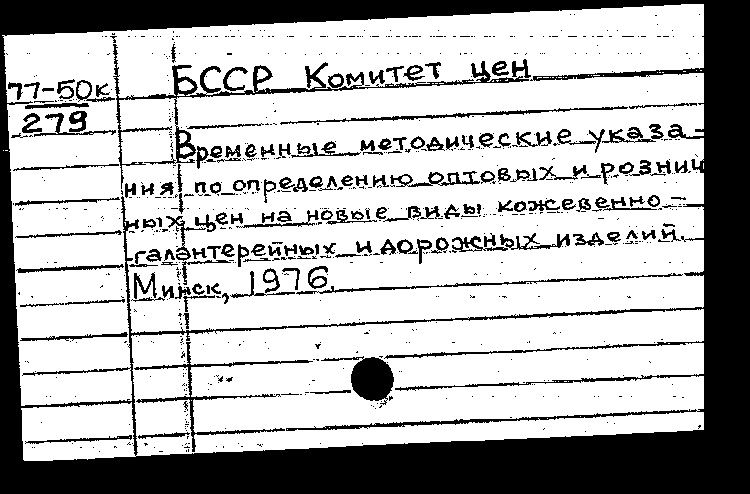 77-50к
279
БССР Комитет цен
Временные методические указа-
ния по определению оптовых и рознич
ных цен на новые виды кожевенно-
-галантерейных и дорожных изделий.
Минск, 1976.